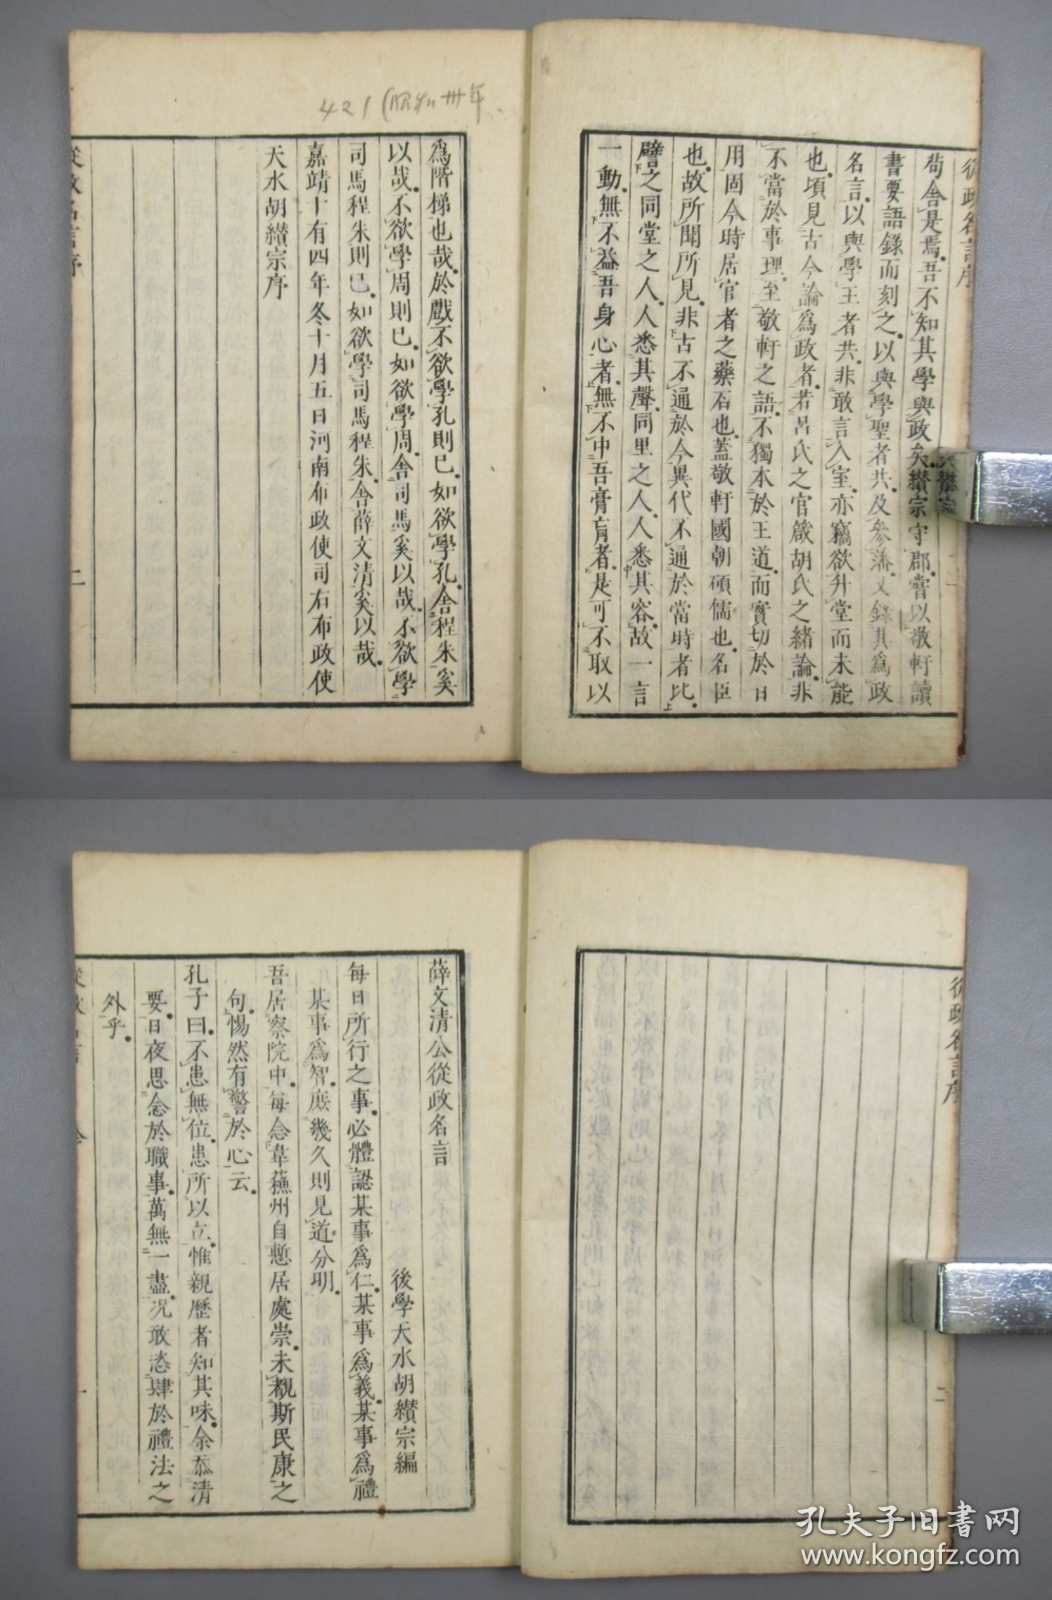 從政名言序
苟舍是焉吾不知其學與政矣纘宗守郡嘗以敬軒讀
書要語錄而刻之以與學聖者共及參藩又錄其為政
名言以與學王者共非敢言入室亦竊欲升堂而未能
也頃見古今論為政者若呂氏之官箴胡氏之緒論非
不當於事理至敬軒之語不獨本於王道而實切於日
用固今時居官者之藥石也蓋敬軒國朝碩儒也名臣
也故所聞所見非古不通於今異代不通於當時者比
譬之同堂之人人悉其聲同里之人人悉其容故一言
一動無不益吾身心者無不中吾膏肓者是可不取以
421
年
為階梯也哉於戲不欲學孔則已如欲學孔舍程朱奚
以哉不欲學周則已如欲學周舍司馬奚以哉不欲學
司馬程朱則已如欲學司馬程朱舍薛文清奚以哉
嘉靖十有四年冬十月五日河南布政使司右布政使
天水胡纘宗序
二
從政名言序
薛文清公從政名言
後學天水胡纘宗編
每日所行之事必體認某事為仁某事為義某事為禮
某事為智庶幾久則見道分明
吾居察院中每念韋蘇州自慙居處崇未覩斯民康之
句惕然有警於心云
孔子曰不患無位患所以立惟親歷者知其味余忝清
要日夜思念於職事萬無一盡況敢恣肆於禮法之
外乎
孔夫子旧书网
www.kongfz.com